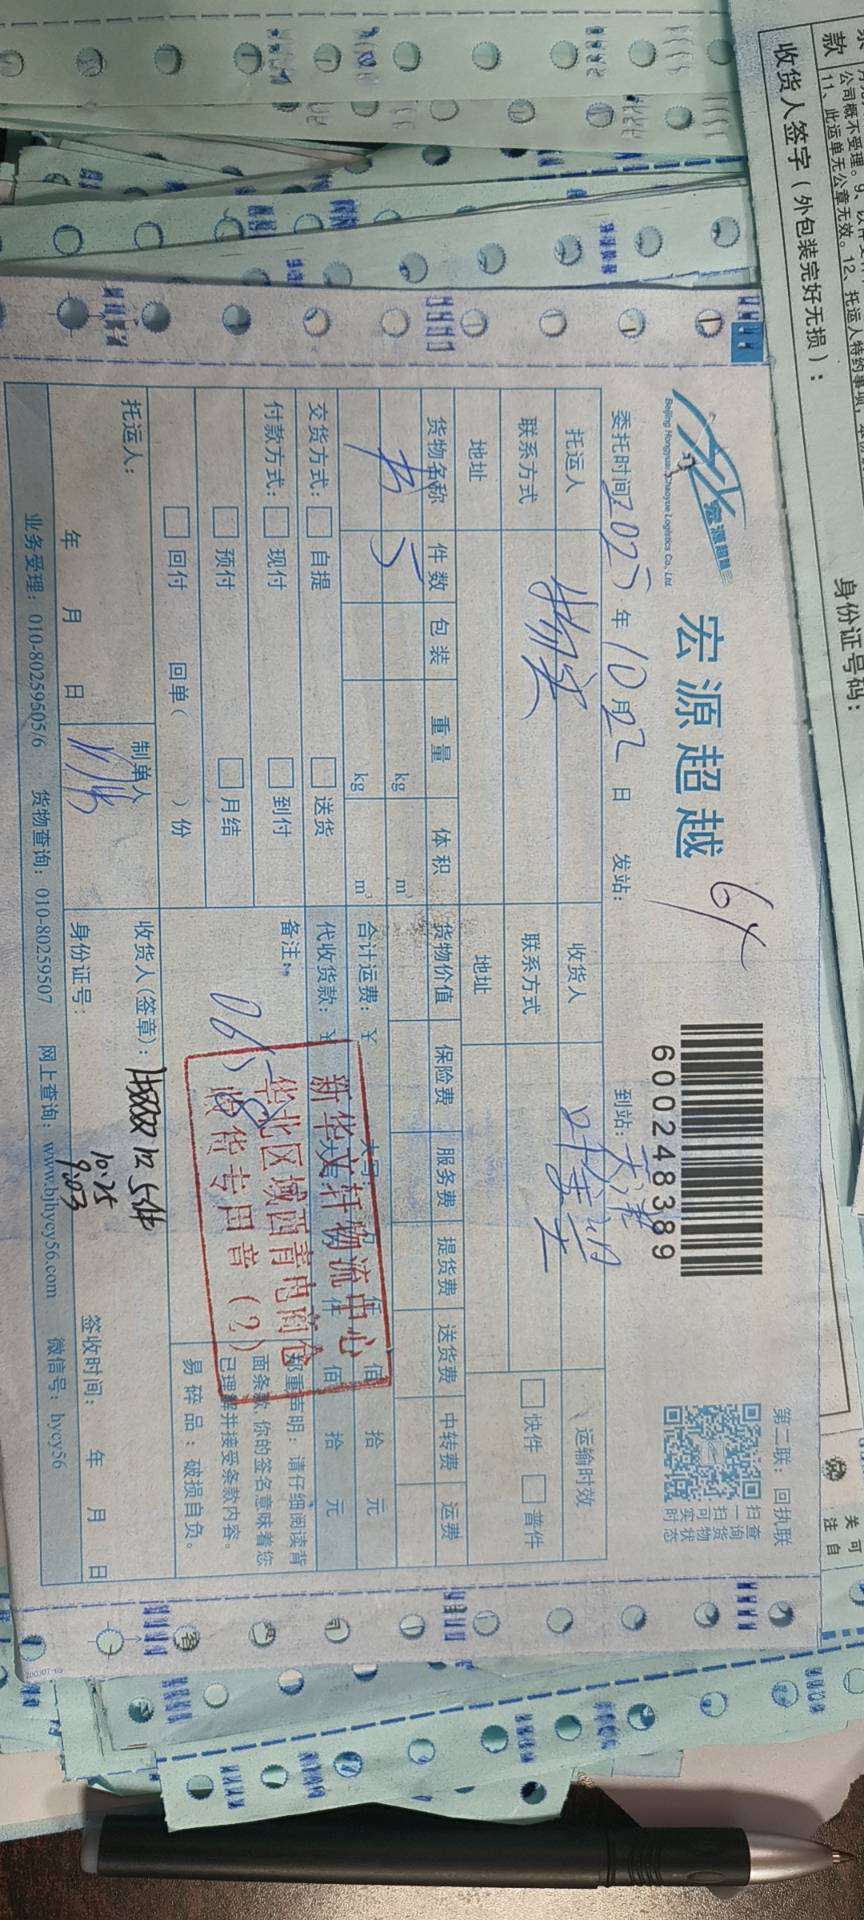 宏源超越
宏源超越
Beijing Hongyuan Chaoyue Logistics Co., Ltd
64
600248389
第二联：回执联
扫一扫可实时
查询货物状态
委托时间 2025 年 10 月 22 日 发站： 到站：天津
托运人 收货人 运输时效：
联系方式 联系方式 快件 普件
地址 地址
货物名称 件数 包装 重量 体积 货物价值 保险费 服务费 提货费 送货费 中转费 运费
书 5 kg m³
kg m³ 合计运费：¥ 佰 拾 元
交货方式： 自提 送货 代收货款：¥ 仟 佰 拾 元
付款方式： 现付 到付 备注：
预付 月结
回付 回单（ ）份
郑重声明：请仔细阅读背
面条款 你的签名意味着您
已理解并接受条款内容。
易碎品：破损自负。
新华文轩物流中心
华北区域西青电商仓
收货专用章（2）
托运人： 制单人 收货人(签章)：
年 月 日 身份证号： 签收时间： 年 月 日
10.25
9:03
业务受理：010-80259505/6 货物查询：010-80259507 网上查询：www.bjhycy56.com 微信号：hycy56
公司概不受理。9、
11、此运单无公章无效。12、托运人特约事项
收货人签字（外包装完好无损）：
身份证号码：